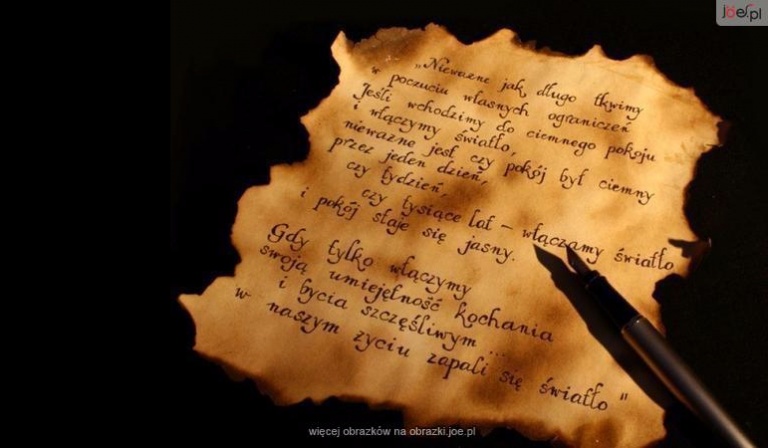 joe.pl
„Nieważne jak długo tkwimy
w poczuciu własnych ograniczeń
Jeśli wchodzimy do ciemnego pokoju
i włączymy światło,
nieważne jest czy pokój był ciemny
przez jeden dzień,
czy tydzień,
czy tysiące lat – włączamy światło
i pokój staje się jasny.
Gdy tylko włączymy
swoją umiejętność kochania
i bycia szczęśliwym ...
w naszym życiu zapali się światło"
więcej obrazków na obrazki.joe.pl